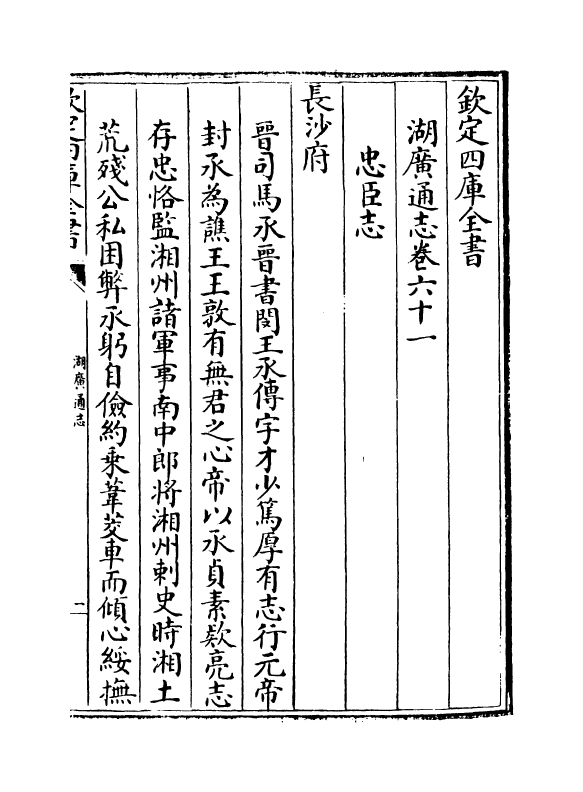 欽定四庫全書
湖廣通志卷六十一
忠臣志
長沙府
晉司馬承晉書閔王承傳字才少篤厚有志行元帝
封承為譙王王敦有無君之心帝以承貞素欵亮志
存忠恪監湘州諸軍事南中郎將湘州刺史時湘土
荒殘公私困弊承躬自儉約乘葦茭車而傾心綏撫
欽定四庫全書
湖廣通志